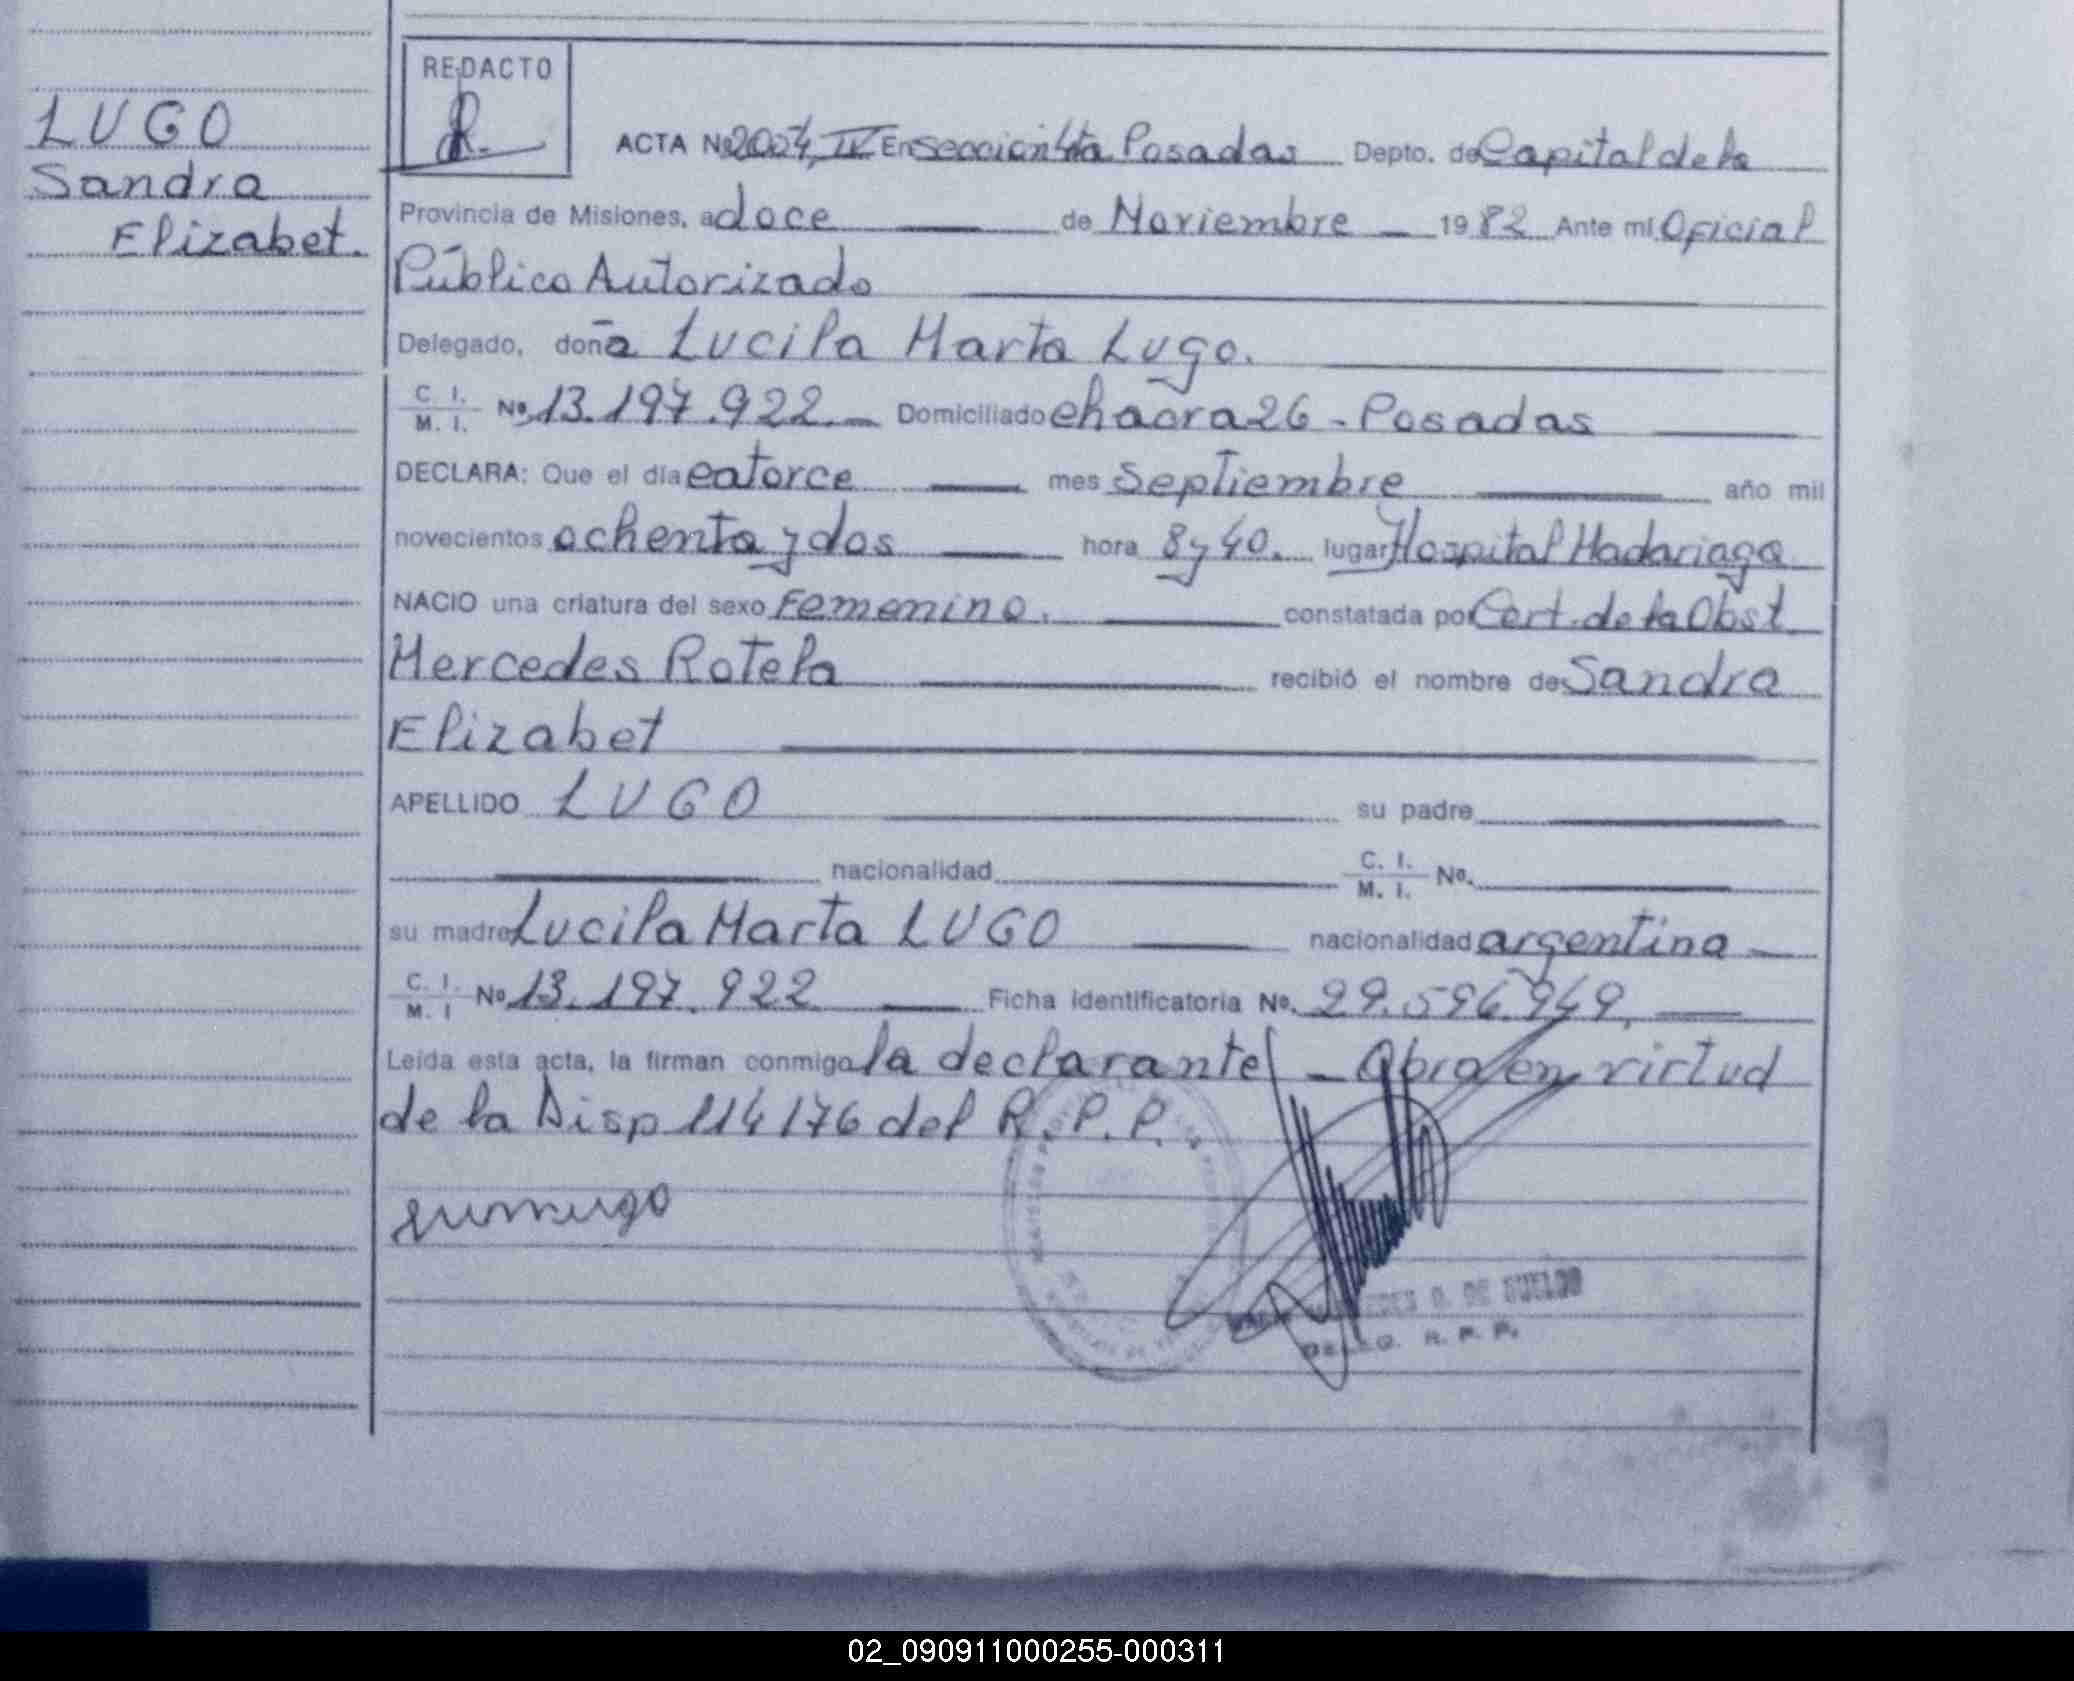 LUGO
Sandra
Elizabet.
REDACTO
ACTA Nº 2004, IV En Sección 4ta Posadas Depto. de Capital de la
Provincia de Misiones, a doce de Noviembre 1982 Ante mi Oficial
Público Autorizado
Delegado, doña Lucila Marta Lugo.
C. I. / M. I. Nº 13.197.922 Domiciliado chacra 26 - Posadas
DECLARA: Que el día catorce mes Septiembre año mil
novecientos ochenta y dos hora 8 y 40. lugar Hospital Madariaga
NACIO una criatura del sexo Femenino. constatada por Cert. de la Obst
Mercedes Rotela recibió el nombre de Sandra
Elizabet
APELLIDO LUGO su padre
nacionalidad C. I. / M. I. Nº
su madre Lucila Marta LUGO nacionalidad argentina
C. I. / M. I Nº 13.197.922 Ficha identificatoria Nº 29.596.949.
Leída esta acta, la firman conmigo la declarante - Obra en virtud
de la Disp 114176 del R.P.P.
DE SUELDO
R. P. P.
02_090911000255-000311